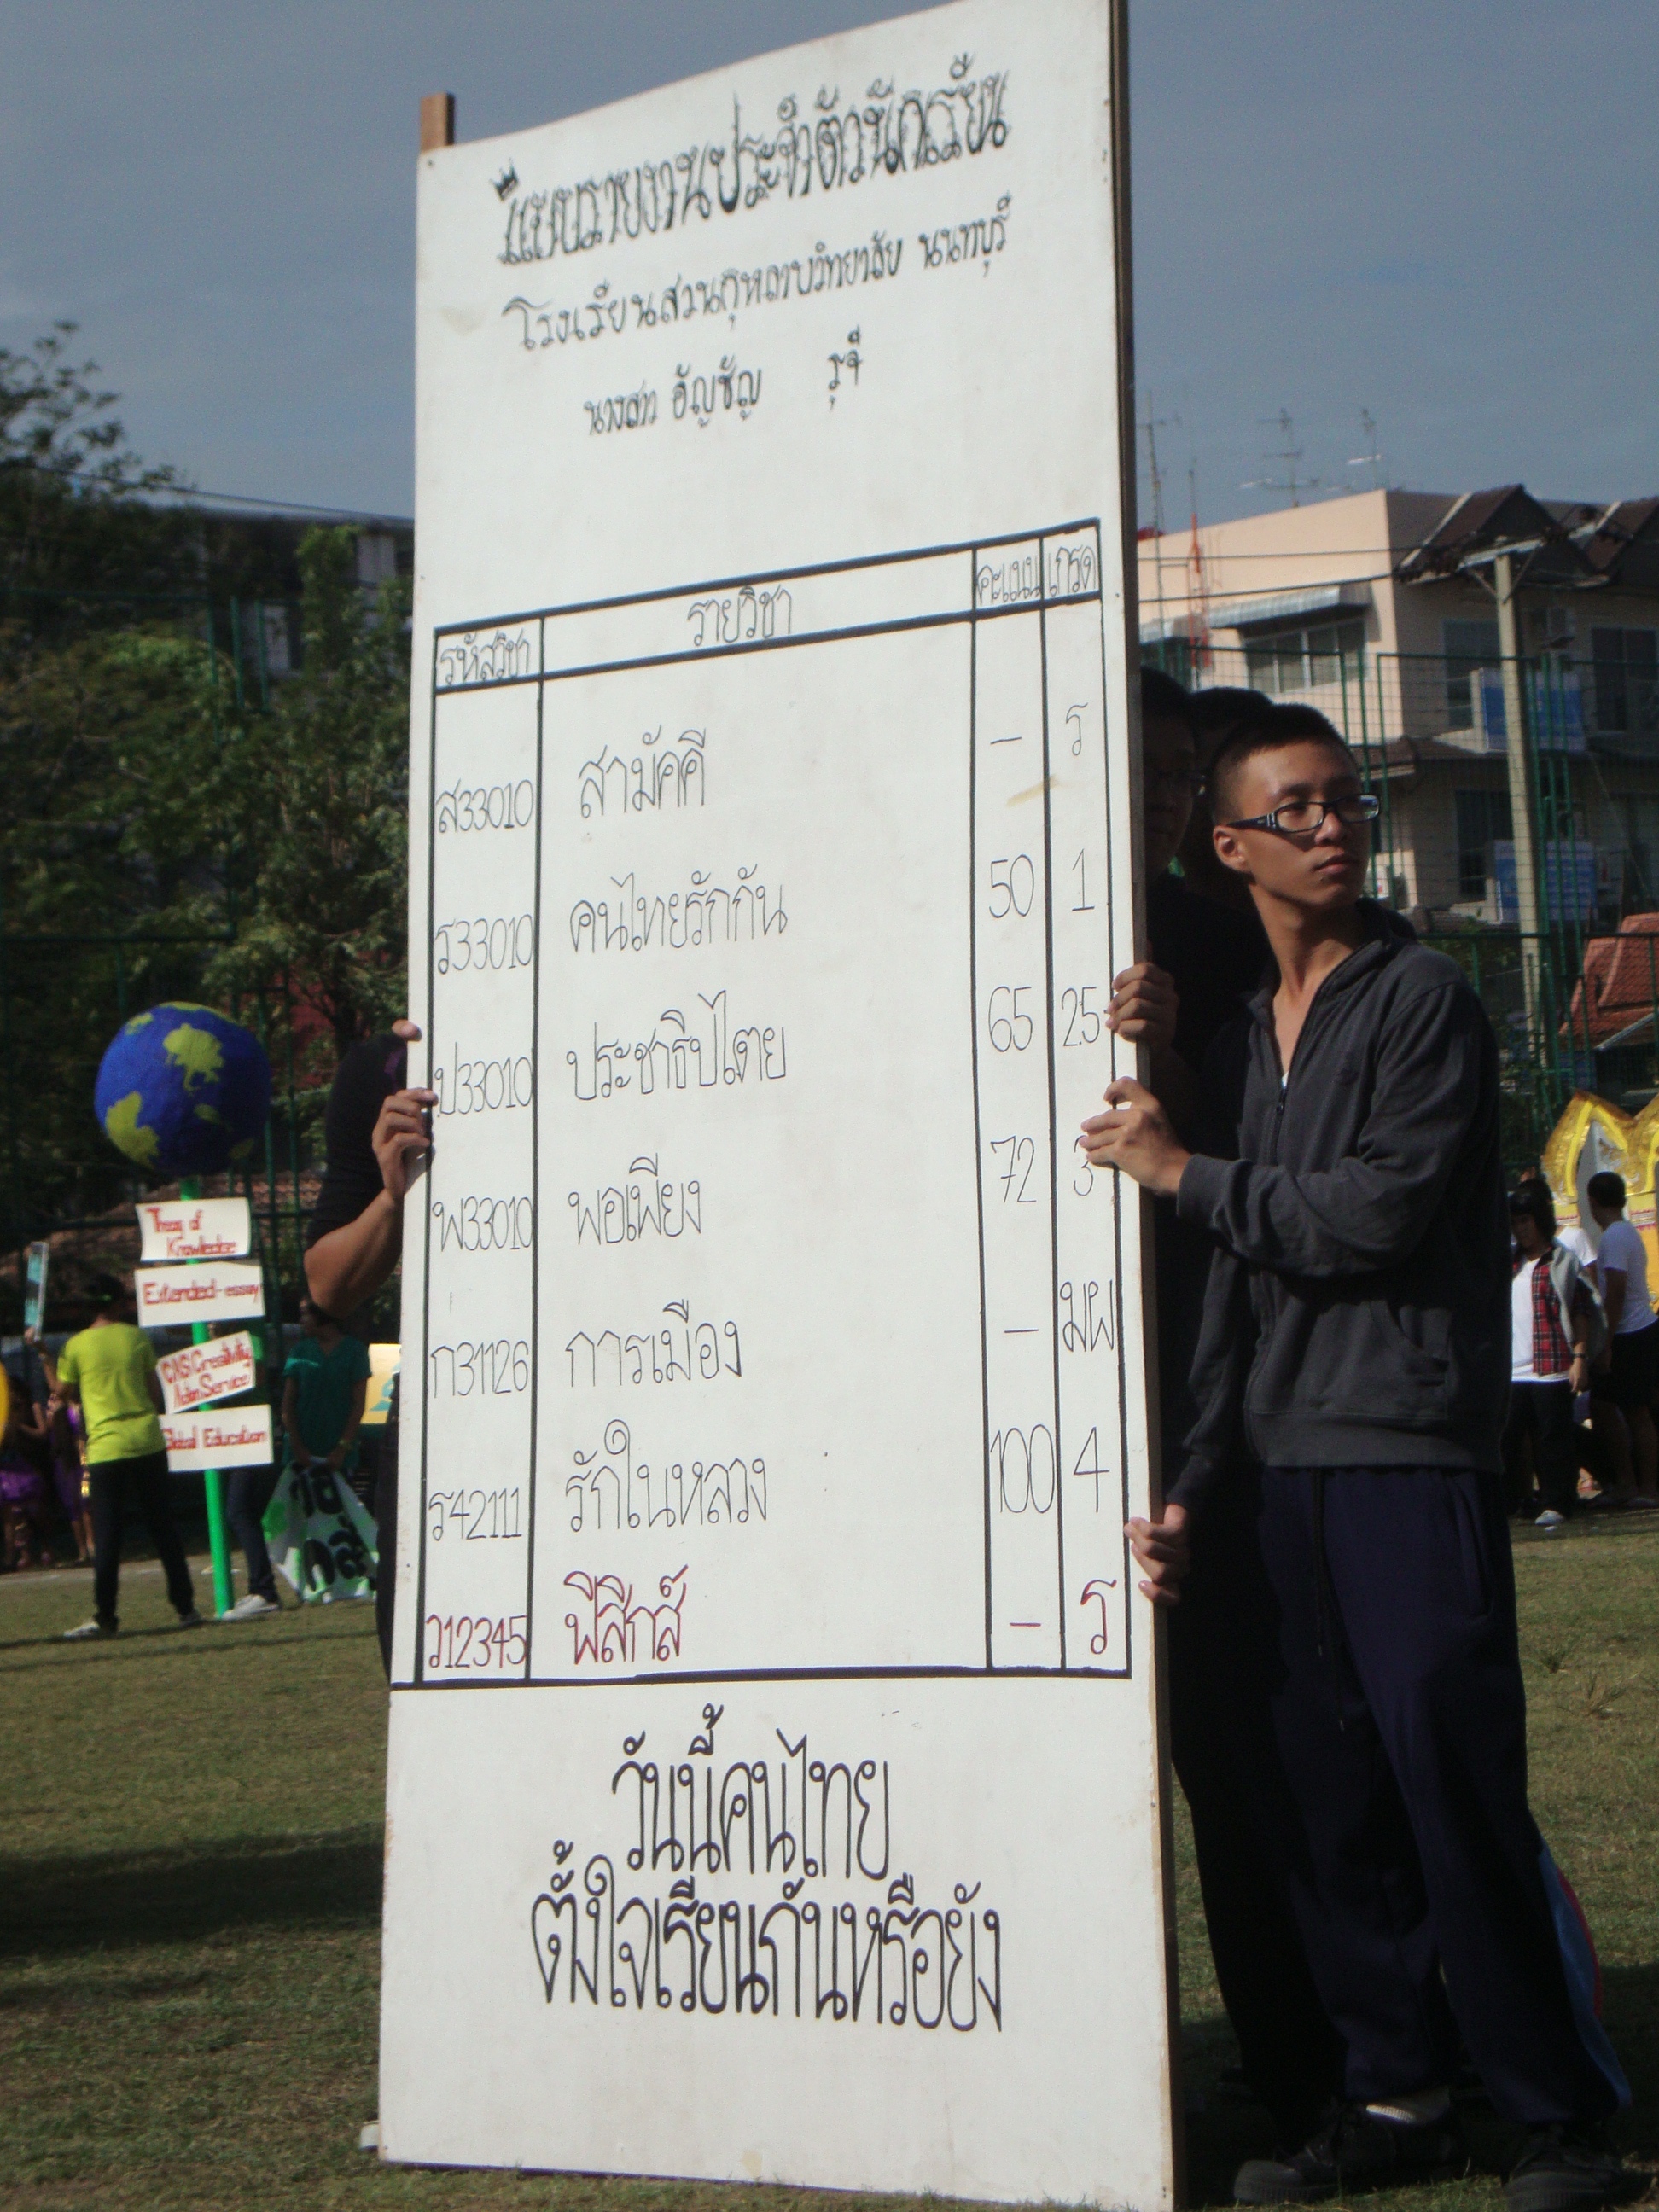 แบบรายงานประจำตัวนักเรียน
โรงเรียนสวนกุหลาบวิทยาลัย นนทบุรี
นางสาว อัญชัญ รุจี
รหัสวิชา รายวิชา คะแนน เกรด
ส33010 สามัคคี - ร
ร33010 คนไทยรักกัน 50 1
ป33010 ประชาธิปไตย 65 2.5
พ33010 พอเพียง 72 3
ก31126 การเมือง - มผ
ร42111 รักในหลวง 100 4
ว12345 ฟิสิกส์ - ร
วันนี้คนไทย
ตั้งใจเรียนกันหรือยัง
Theory of
Knowledge
Extended-essay
CAS(Creativity
Action Service
Global Education